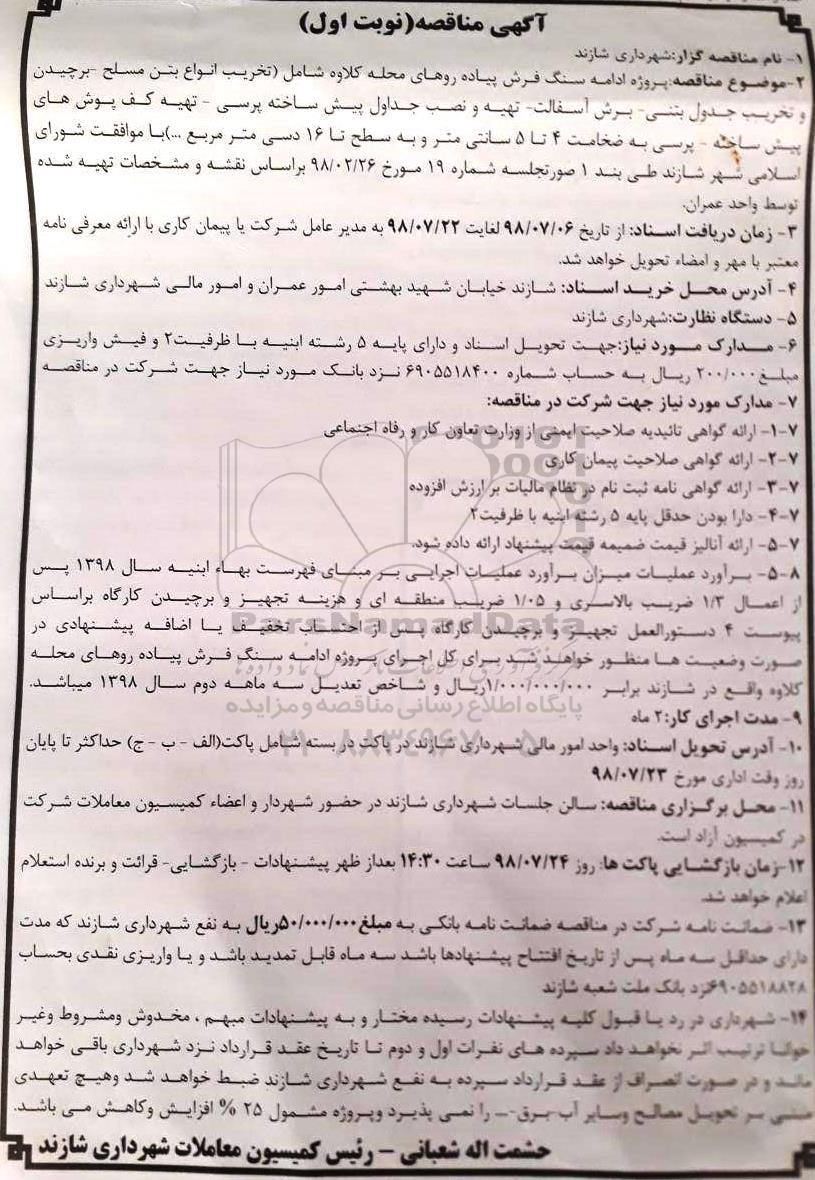 آگهی مناقصه(نوبت اول)
۱- نام مناقصه گزار:شهرداری شازند
۲-موضوع مناقصه:پروژه ادامه سنگ فرش پیاده روهای محله کلاوه شامل (تخریب انواع بتن مسلح -برچیدن
و تخریب جدول بتنی- برش آسفالت- تهیه و نصب جداول پیش ساخته پرسی - تهیه کف پوش های
پیش ساخته - پرسی به ضخامت ۴ تا ۵ سانتی متر و به سطح تا ۱۶ دسی متر مربع ...)با موافقت شورای
اسلامی شهر شازند طی بند ۱ صورتجلسه شماره ۱۹ مورخ ۹۸/۰۲/۲۶ براساس نقشه و مشخصات تهیه شده
توسط واحد عمران.
۳- زمان دریافت اسناد: از تاریخ ۹۸/۰۷/۰۶ لغایت ۹۸/۰۷/۲۲ به مدیر عامل شرکت یا پیمان کاری با ارائه معرفی نامه
معتبر با مهر و امضاء تحویل خواهد شد.
۴- آدرس محل خرید اسناد: شازند خیابان شهید بهشتی امور عمران و امور مالی شهرداری شازند
۵- دستگاه نظارت:شهرداری شازند
۶- مدارک مورد نیاز:جهت تحویل اسناد و دارای پایه ۵ رشته ابنیه با ظرفیت۲ و فیش واریزی
مبلغ۲۰۰/۰۰۰ ریال به حساب شماره ۶۹۰۵۵۱۸۴۰۰ نزد بانک مورد نیاز جهت شرکت در مناقصه
۷- مدارک مورد نیاز جهت شرکت در مناقصه:
۱-۷- ارائه گواهی تائیدیه صلاحیت ایمنی از وزارت تعاون کار و رفاه اجتماعی
۲-۷- ارائه گواهی صلاحیت پیمان کاری
۳-۷- ارائه گواهی نامه ثبت نام در نظام مالیات بر ارزش افزوده
۴-۷- دارا بودن حدقل پایه ۵ رشته ابنیه با ظرفیت۲
۵-۷- ارائه آنالیز قیمت ضمیمه قیمت پیشنهاد ارائه داده شود.
۵-۸- برآورد عملیات میزان برآورد عملیات اجرایی بر مبنای فهرست بهاء ابنیه سال ۱۳۹۸ پس
از اعمال ۱/۳ ضریب بالاسری و ۱/۰۵ ضریب منطقه ای و هزینه تجهیز و برچیدن کارگاه براساس
پیوست ۴ دستورالعمل تجهیز و برچیدن کارگاه پس از احتساب تخفیف یا اضافه پیشنهادی در
صورت وضعیت ها منظور خواهند شد برای کل اجرای پروژه ادامه سنگ فرش پیاده روهای محله
کلاوه واقع در شازند برابر ۱/۰۰۰/۰۰۰/۰۰۰ریال و شاخص تعدیل سه ماهه دوم سال ۱۳۹۸ میباشد.
۹- مدت اجرای کار:۲ ماه
۱۰- آدرس تحویل اسناد: واحد امور مالی شهرداری شازند در پاکت در بسته شامل پاکت(الف - ب - ج) حداکثر تا پایان
روز وقت اداری مورخ ۹۸/۰۷/۲۳
۱۱- محل برگزاری مناقصه: سالن جلسات شهرداری شازند در حضور شهردار و اعضاء کمیسیون معاملات شرکت
در کمیسیون آزاد است.
۱۲-زمان بازگشایی پاکت ها: روز ۹۸/۰۷/۲۴ ساعت ۱۴:۳۰ بعداز ظهر پیشنهادات - بازگشایی- قرائت و برنده استعلام
اعلام خواهد شد.
۱۳- ضمانت نامه شرکت در مناقصه ضمانت نامه بانکی به مبلغ۵۰/۰۰۰/۰۰۰ریال به نفع شهرداری شازند که مدت
دارای حداقل سه ماه پس از تاریخ افتتاح پیشنهادها باشد سه ماه قابل تمدید باشد و یا واریزی نقدی بحساب
۶۹۰۵۵۱۸۸۲۸نزد بانک ملت شعبه شازند
۱۴- شهرداری در رد یا قبول کلیه پیشنهادات رسیده مختار و به پیشنهادات مبهم ، مخدوش ومشروط وغیر
خوانا ترتیب اثر نخواهد داد سپرده های نفرات اول و دوم تا تاریخ عقد قرارداد نزد شهرداری باقی خواهد
ماند و در صورت انصراف از عقد قرارداد سپرده به نفع شهرداری شازند ضبط خواهد شد وهیچ تعهدی
مبنی بر تحویل مصالح وسایر آب-برق-... را نمی پذیرد وپروژه مشمول ۲۵ % افزایش وکاهش می باشد.
حشمت اله شعبانی - رئیس کمیسیون معاملات شهرداری شازند
ParsNamadData
پایگاه اطلاع رسانی مناقصه و مزایده